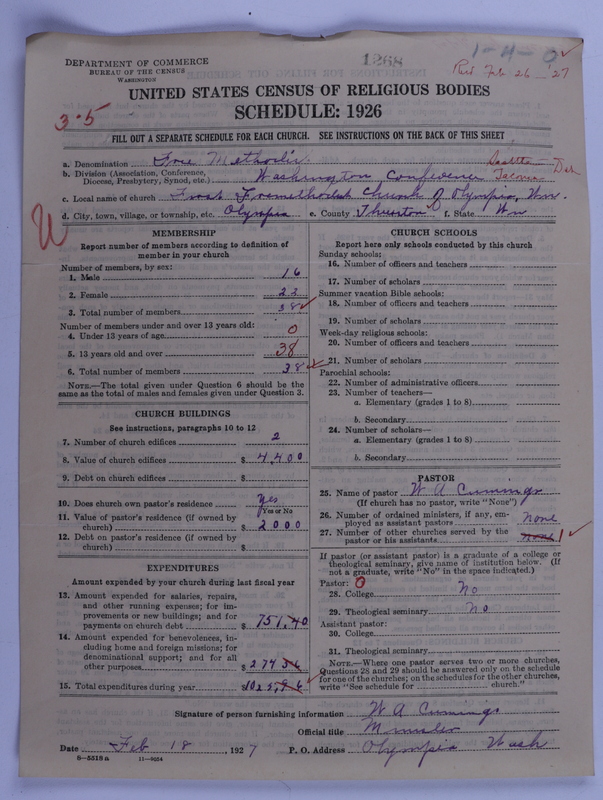 DEPARTMENT OF COMMERCE
BUREAU OF THE CENSUS
WASHINGTON
1268
1-4-0
Rec'd Feb 26 '27
UNITED STATES CENSUS OF RELIGIOUS BODIES
SCHEDULE: 1926
3-5
FILL OUT A SEPARATE SCHEDULE FOR EACH CHURCH. SEE INSTRUCTIONS ON THE BACK OF THIS SHEET
a. Denomination Free Methodist
b. Division (Association, Conference, Diocese, Presbytery, Synod, etc.) Washington Conference Seattle Tacoma Dist
c. Local name of church First Freemethodist Church of Olympia, Wn.
d. City, town, village, or township, etc. Olympia e. County Thurston f. State Wn
MEMBERSHIP
Report number of members according to definition of
member in your church
Number of members, by sex:
1. Male 16
2. Female 22
3. Total number of members 38
Number of members under and over 13 years old:
4. Under 13 years of age 0
5. 13 years old and over 38
6. Total number of members 38
NOTE.—The total given under Question 6 should be the
same as the total of males and females given under Question 3.
CHURCH BUILDINGS
See instructions, paragraphs 10 to 12
7. Number of church edifices 2
8. Value of church edifices $ 4,400
9. Debt on church edifices $
10. Does church own pastor's residence Yes
(Yes or No)
11. Value of pastor's residence (if owned by
church) $ 2000
12. Debt on pastor's residence (if owned by
church) $
EXPENDITURES
Amount expended by your church during last fiscal year
13. Amount expended for salaries, repairs,
and other running expenses; for im-
provements or new buildings; and for
payments on church debt $ 751.40
14. Amount expended for benevolences, in-
cluding home and foreign missions; for
denominational support; and for all
other purposes $ 274 36
15. Total expenditures during year $ 1025.
CHURCH SCHOOLS
Report here only schools conducted by this church
Sunday schools:
16. Number of officers and teachers
17. Number of scholars
Summer vacation Bible schools:
18. Number of officers and teachers
19. Number of scholars
Week-day religious schools:
20. Number of officers and teachers
21. Number of scholars
Parochial schools:
22. Number of administrative officers
23. Number of teachers—
a. Elementary (grades 1 to 8)
b. Secondary
24. Number of scholars—
a. Elementary (grades 1 to 8)
b. Secondary
PASTOR
25. Name of pastor W A Cummings
(If church has no pastor, write "None")
26. Number of ordained ministers, if any, em-
ployed as assistant pastors none
27. Number of other churches served by the
pastor or his assistants none 1
If pastor (or assistant pastor) is a graduate of a college or
theological seminary, give name of institution below. (If
not a graduate, write "No" in the space indicated.)
Pastor: 0
28. College No
29. Theological seminary No
Assistant pastor:
30. College
31. Theological seminary
NOTE.—Where one pastor serves two or more churches,
Questions 28 and 29 should be answered only on the schedule
for one of the churches; on the schedules for the other churches,
write "See schedule for church."
Signature of person furnishing information W A Cummings
Official title Minister
Date Feb 18, 1927 P. O. Address Olympia Wash
8-5518 a 11-9054